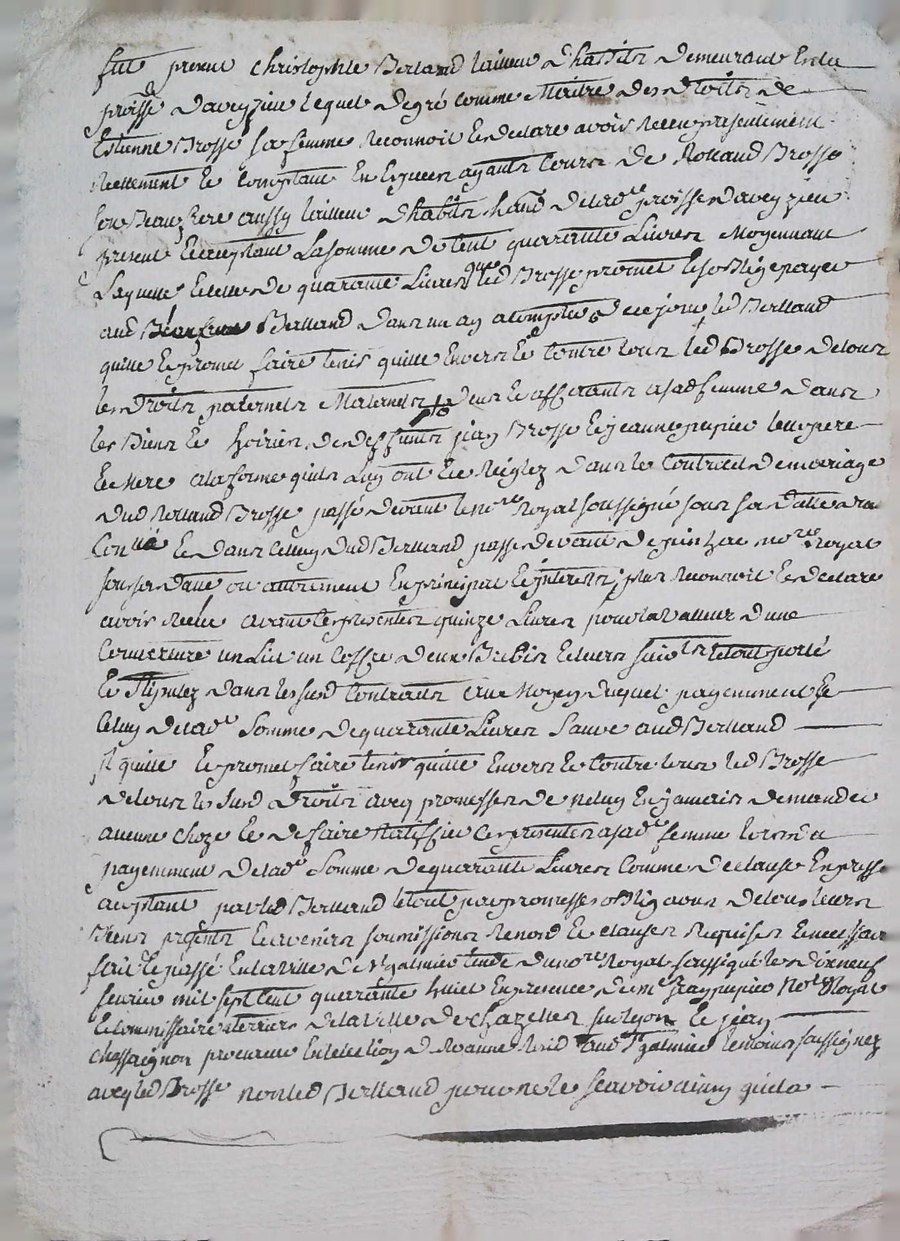 fut present Christophle Bertand tailleur d'habits demeurant en la
proisse daveyzieu lequel de gré comme Maitre des droits de
Estienne Brosse sa femme reconnoit et declare avoir receu presentement
reellement et comptant en especes ayants cours de Rolland Brosse
son beaufrere aussy tailleur d'habits hand de lad.e proisse daveyzieu
present et acceptant la somme de cent quarante livres moyennant
laquelle et celle de quarante livres que led Brosse promet et soblige payer
aud Bertand dans un an a compter de ce jour led Bertand
quitte et promet faire tenir quitte envers et contre tous led Brosse de tous
les droits paternels maternels deus et affairants a sad femme dans
les biens et hoiries de deffunts jean Brosse et jeanne pupier leurs pere
et mere a la forme quils luy ont été réglez dans le contract de mariage
dud Rolland Brosse passé devant le no.re Royal soussigné sous sa datte
Con.llé et dans celluy dud Bertand passé devant no.re Royal
sous sa datte ou autrement en principal et interests, plus reconnoit et declare
avoir receu avant les presentes quinze livres pour la valleur d'une
couverture un lit un coffre deux brebis et leurs suittes le tout porté
et stipulez dans les susd contracts au moyen duquel payemment et
celuy de lad.e somme de quarante livres sauve aud Bertand
Il quitte et promet faire tenir quitte envers et contre tous led Brosse
de tous les susd droits avec promesses de ne luy en jamais demander
aucune choze et de faire rattiffier ces presentes a sad.e femme lors du
payemment de lad.e somme de quarante livres comme de clause expresse
acceptant par led Bertand le tout par promesses obligaons de tous leurs
biens presents et avenirs soumissions renond et clauses requises et necessair
fait et passé en la ville de S.t galmier étude du no.re Royal soussigné le dixneuf
fevrier mil sept cent quarante huict en presence de m.e jean pupier No.re Royal
et commissaire a terriers de la ville de chazelles sur lyon et jean
chassaignon procureur en election de Roanne resid aud S.t galmier temoins soussignez
avec led Brosse non led Bertand pour ne le scavoir ainsy quil a